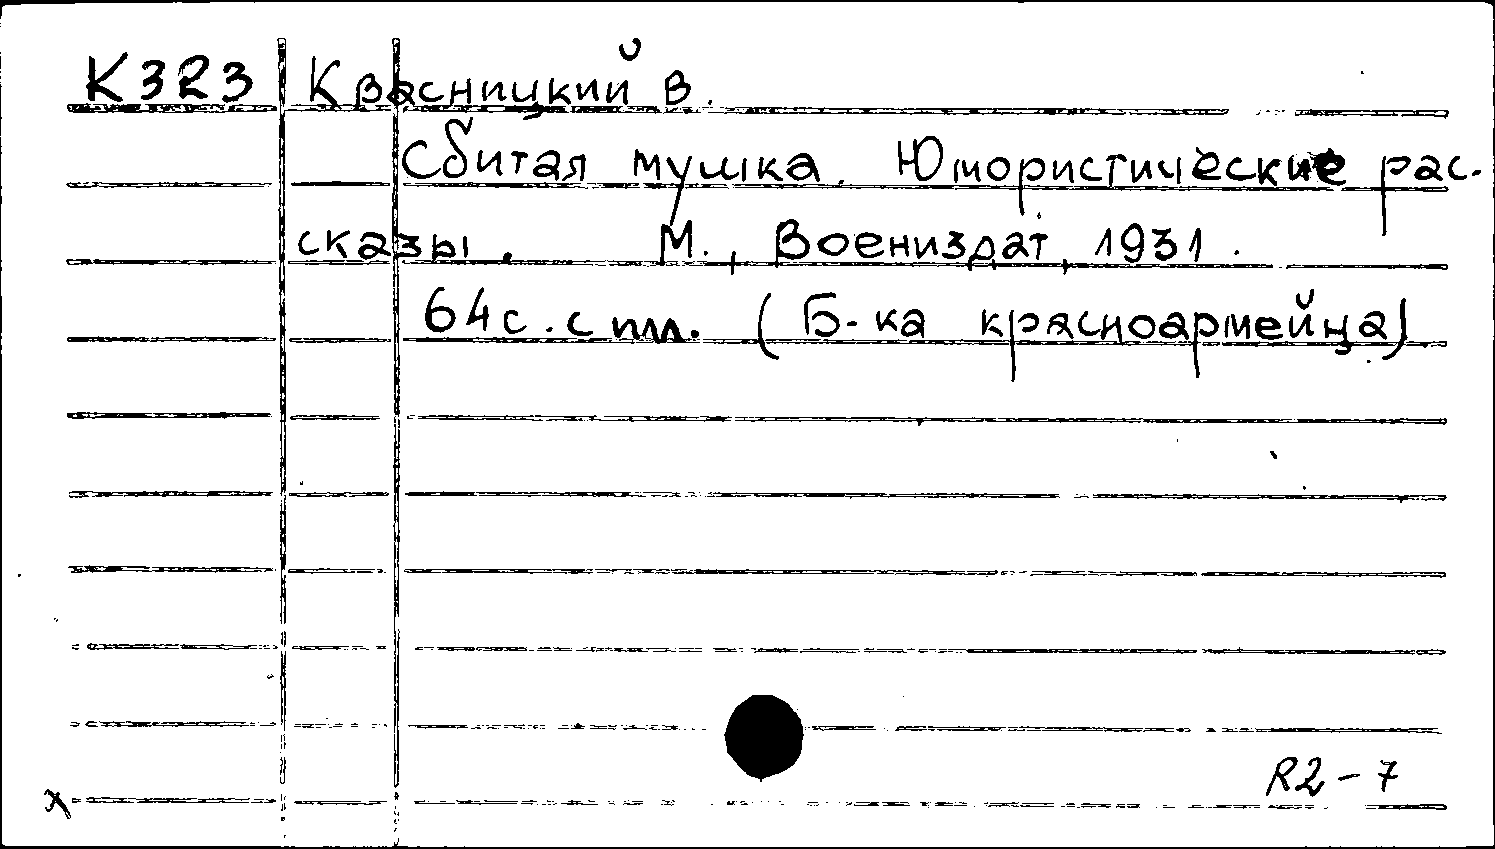 К323 Квасницкий В.
Сбитая мушка. Юмористические рас-
сказы. М., Воениздат, 1931.
64с. с илл. (Б-ка красноармейца)
R2-7